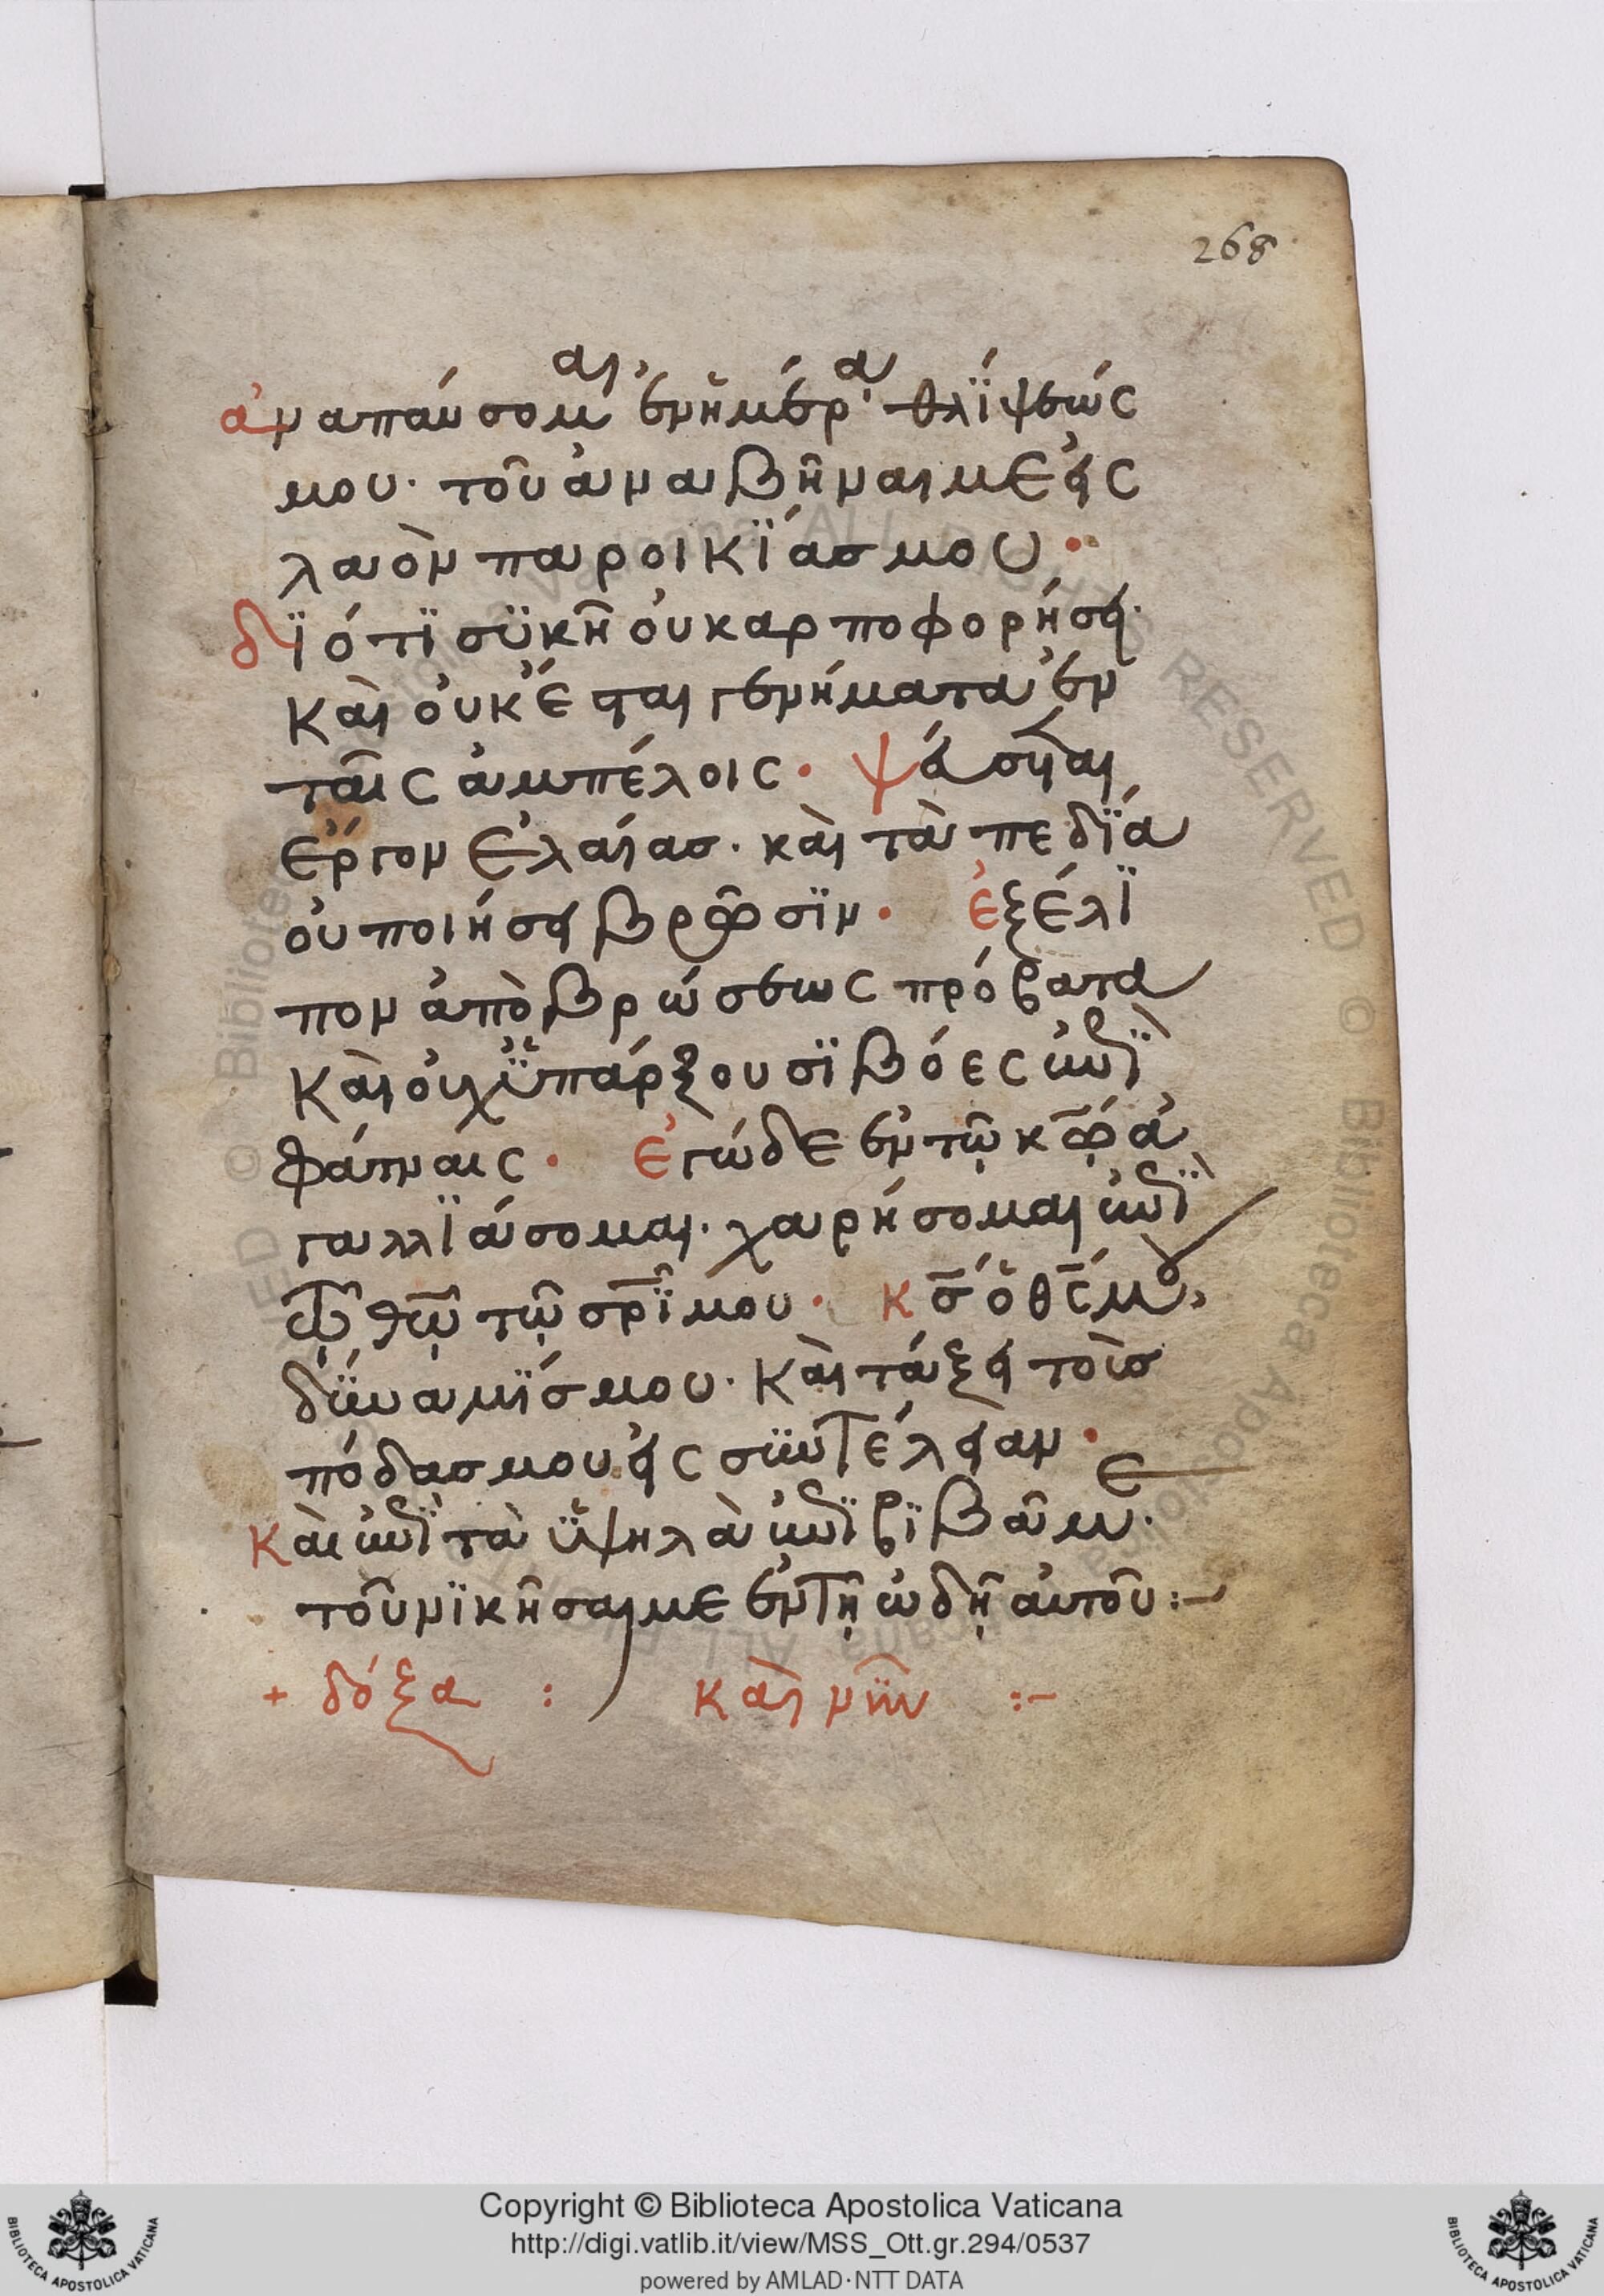 268
ἀναπαύσομαι ἐν ἡμέρα θλίψεώς
μου· τοῦ ἀναβῆναι με εἰς
λαὸν παροικΐασ μου·
δϊότϊ συκῆ οὐ καρποφορήσει·
Καὶ οὐκ ἔσται γεννήματα ἐν
ταῖς ἀμπέλοις· ψεύσεται
ἔργον ἐλαίασ· καὶ τὰ πεδΐα
οὐ ποιήσει βρῶσϊν· ἐξέλϊ
πον ἀπὸ βρώσεως πρόβατα
Καὶ οὐχ ὑπάρξουσϊ βόες ἐπῒ
φάτναις· Ἐγὼ δὲ ἐν τῷ κω̅ ἀ
γαλλϊάσομαι· χαρήσομαι ἐπῒ
τῷ θω̅ τῷ σρϊ̅ μου· κσ̅ ὁ θς̅ μου,
δύναμΐσ μου· Καὶ τάξει τοὺσ
πόδασ μου εἰς συντέλειαν·
Καὶ ἐπῒ τὰ ὑψηλὰ ἐπιβϊβᾶ με·
τοῦ νϊκῆσαι με ἐν τῇ ὠδῇ αὐτοῦ:–
+ δόξα : καὶ νῦν :–
Copyright © Biblioteca Apostolica Vaticana
http://digi.vatlib.it/view/MSS_Ott.gr.294/0537
powered by AMLAD·NTT DATA
BIBLIOTECA APOSTOLICA VATICANA
BIBLIOTECA APOSTOLICA VATICANA